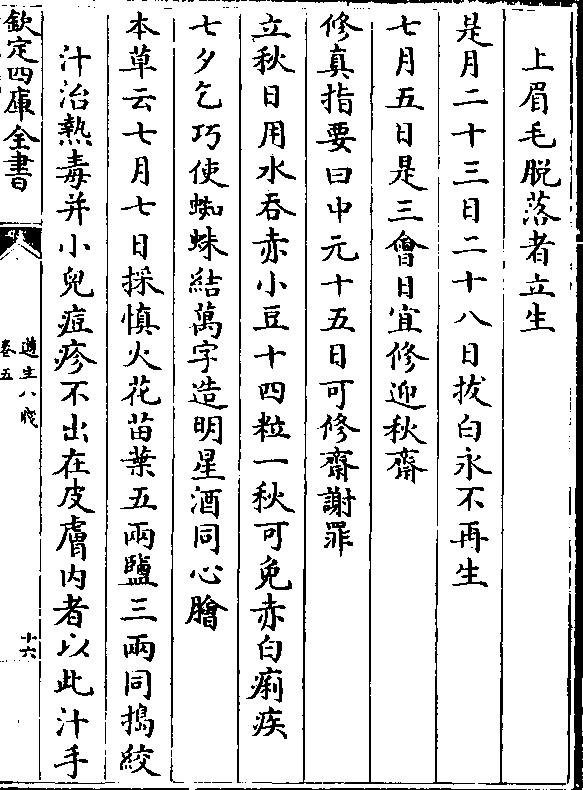 上眉毛脱落者立生
是月二十三日二十八日拔白永不再生
七月五日是三會日宜修迎秋齋
修真指要曰中元十五日可修齋謝罪
立秋日用水吞赤小豆十四粒一秋可免赤白痢疾
七夕乞巧使蜘蛛結萬字造明星酒同心膾
本草云七月七日採慎火花苗葉五兩鹽三兩同搗絞
汁治熱毒并小兒痘疹不出在皮膚内者以此汁手
欽定四庫全書
遵生八牋
卷五
十六